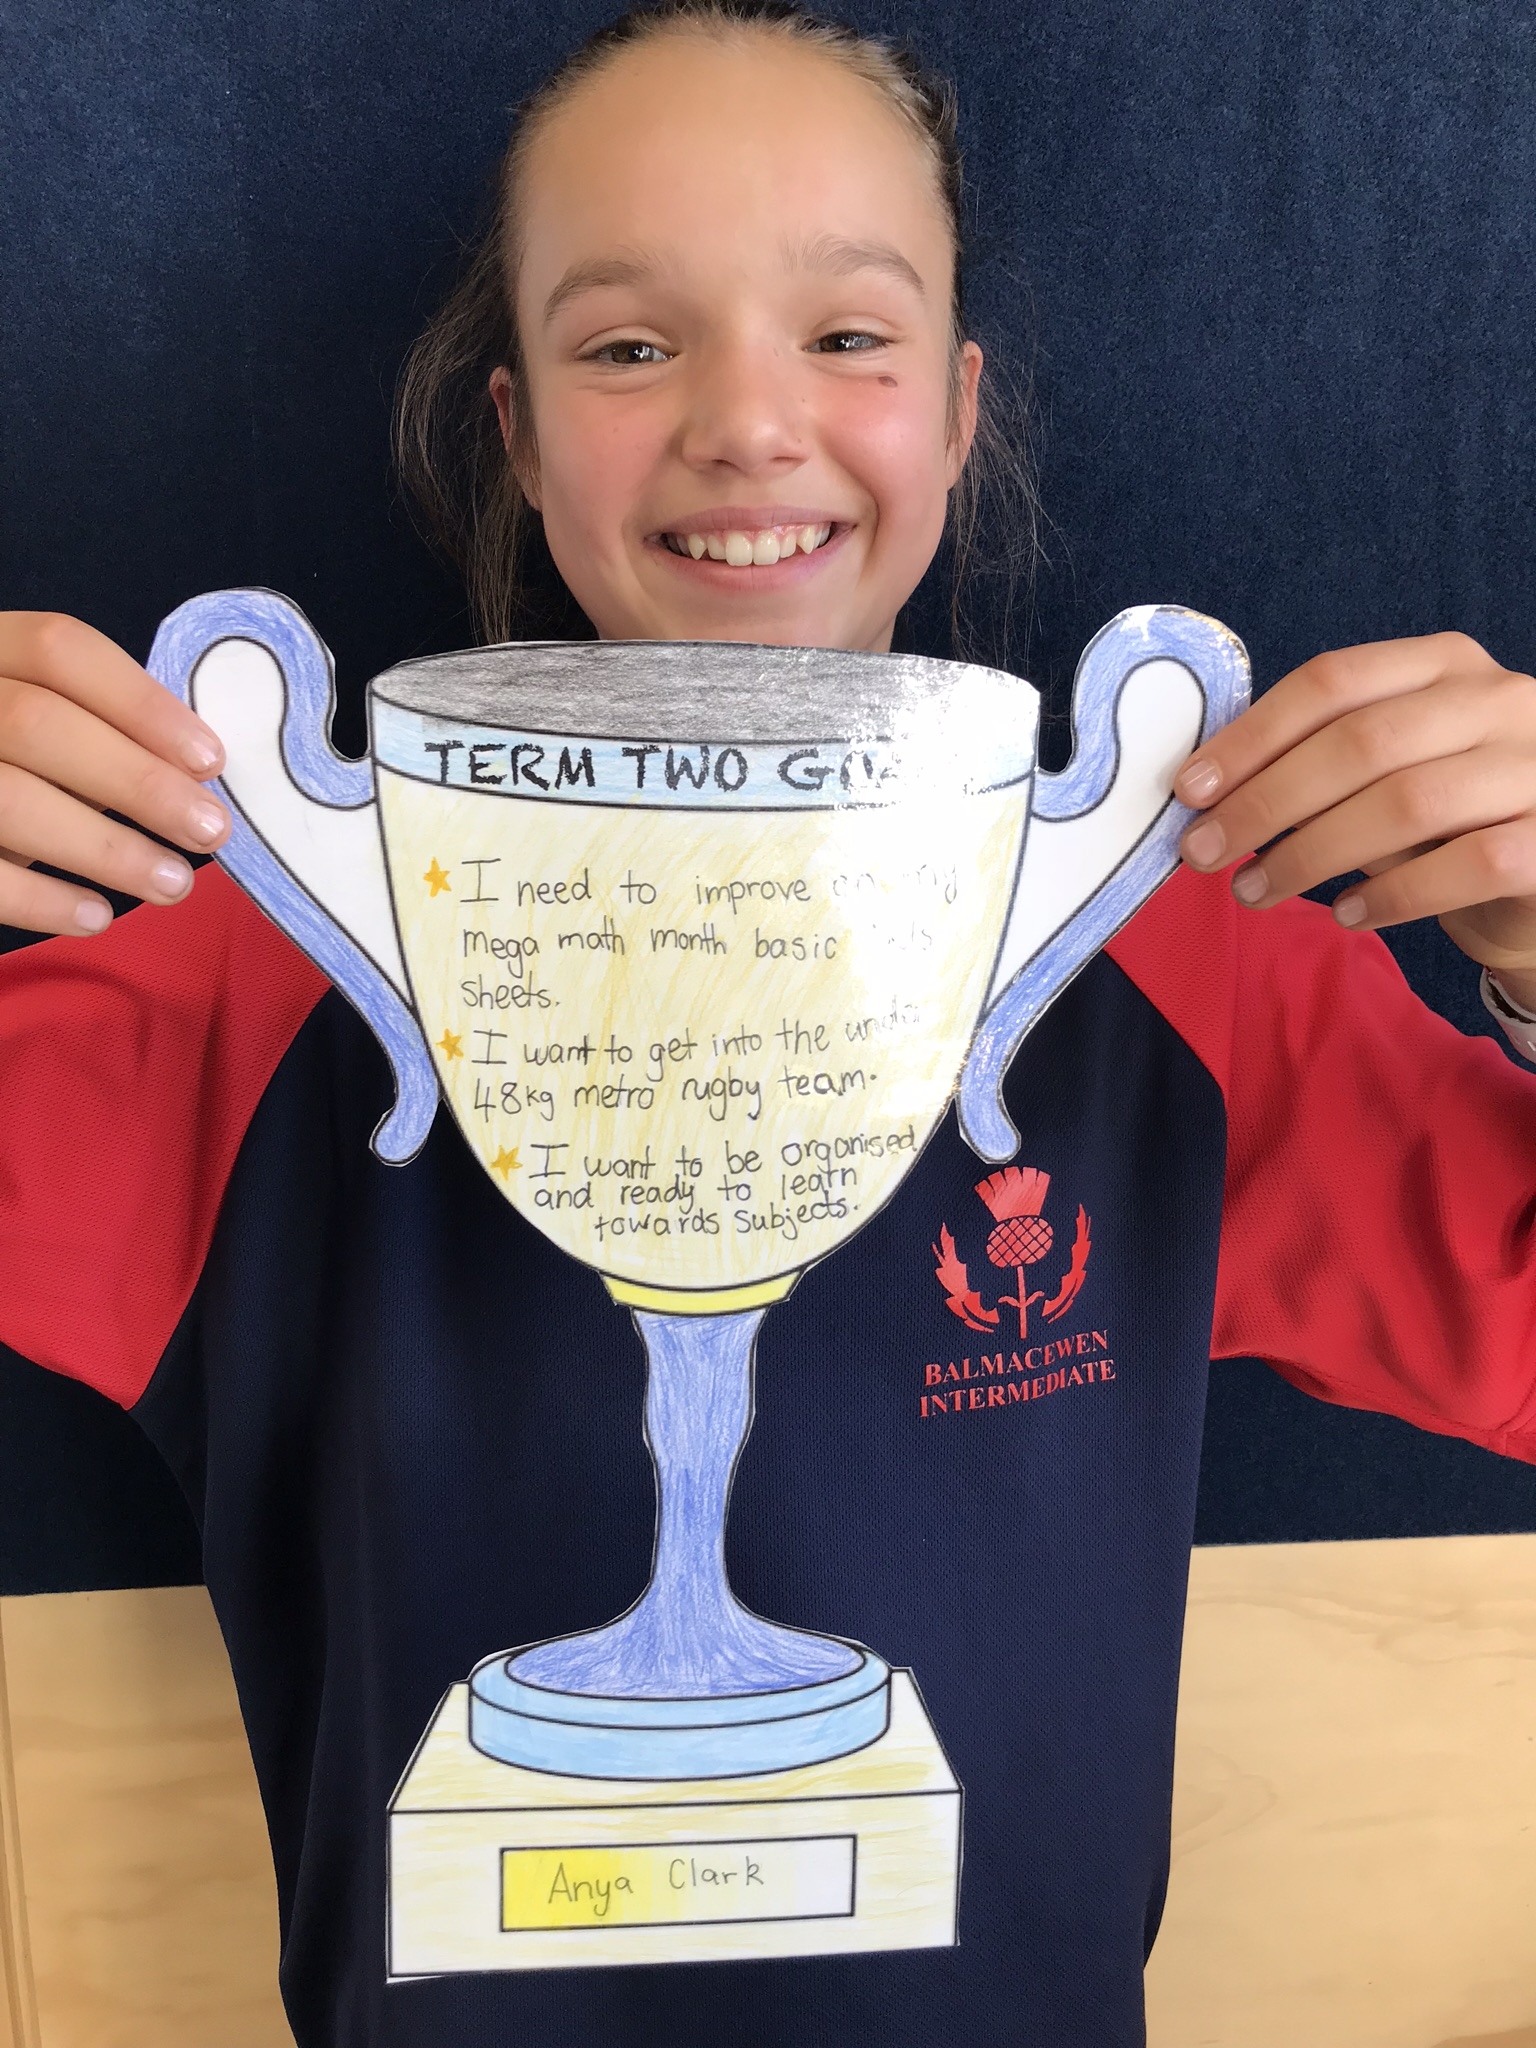 TERM TWO
I need to improve on my
mega math month basic
sheets.
I want to get into the under
48kg metro rugby team.
I want to be organised
and ready to learn
towards subjects.
BALMACEWEN
INTERMEDIATE
Anya Clark